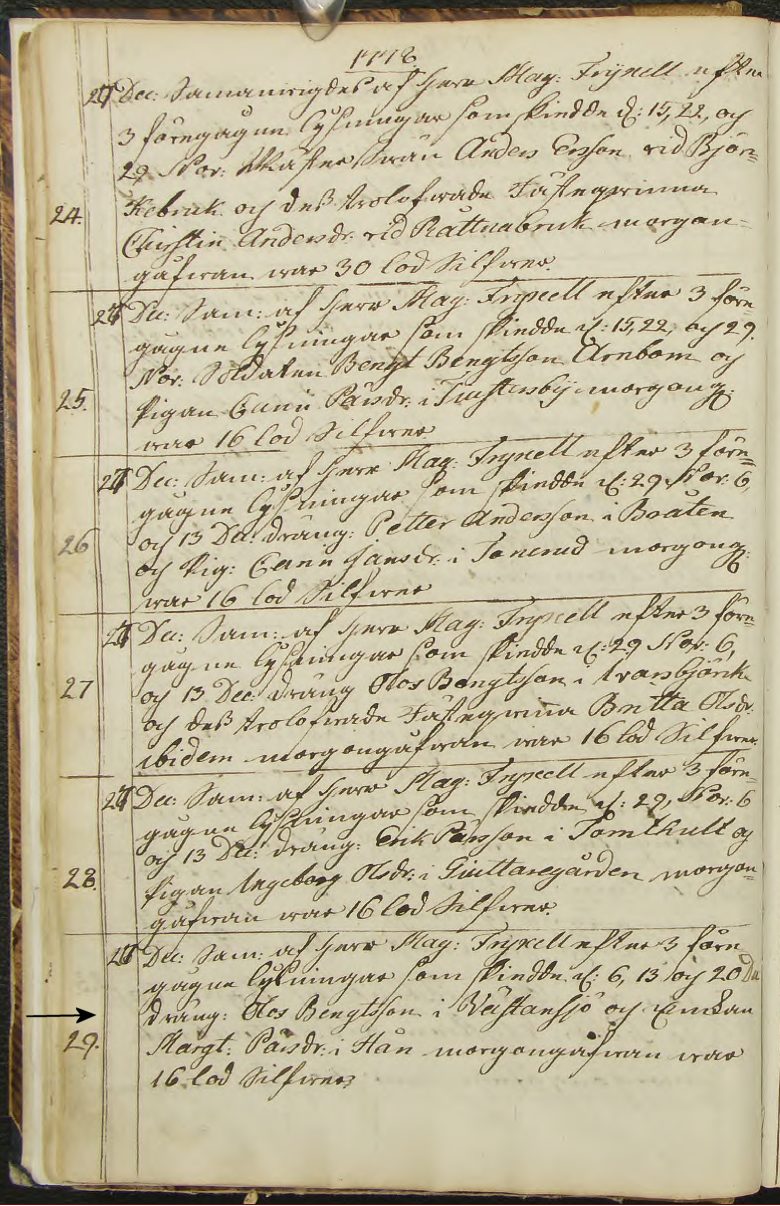 1778.
27 Dec: Samanvigdes af Herr Mag: Fryxell efter
3 föregågne lysningar som skiedde d: 15, 22, och
29 Nov: Mäster Swän Anders Ersson vid Björ=
24. kebruk och dess trolofwade Fästeqvinna
Chirstin Andersdr. vid Rättnabruk morgon=
gåfwan war 30 lod Silfwer.
27 Dec: Sam: af Herr Mag: Fryxell efter 3 före=
gågne lysningar som skiedde d: 15, 22, och 29.
Nov: Soldaten Bengt Bengtsson Arnbom och
25. Pigan Carin Pärsdr. i morgong:
war 16 lod Silfwer
27 Dec: Sam: af Herr Mag: Fryxell efter 3 före=
gågne lysningar som skiedde d: 29 Nov: 6,
26 och 13 Dec: dräng: Petter Andersson i Boåten
och Pig: Carin Jansdr: i Tonerud morgong:
war 16 lod Silfwer
27 Dec: Sam: af Herr Mag: Fryxell efter 3 före=
gågne lysningar som skiedde d: 29 Nov: 6,
27 och 13 Dec: dräng Olos Bengtsson i
och dess trolofwade Fästeqvina Britta Olsdr:
ibidem morgongåfwan war 16 lod Silfwer.
27 Dec: Sam: af Herr Mag: Fryxell efter 3 före=
gågne lysningar som skiedde d: 29, Nov: 6
och 13 Dec: dräng: Erik Pärsson i Tomthult og
28. Pigan Ingeborg Olsdr: i morgon=
gåfwan war 16 lod Silfwer.
27 Dec: Sam: af Herr Mag: Fryxell efter 3 före
gågne lysningar som skiedde d: 6, 13 och 20 De
dräng: Olos Bengtsson i Västansjö och Enckan
29. Margt: Pärsdr: i Hån morgongåfwan war
16 lod Silfwer